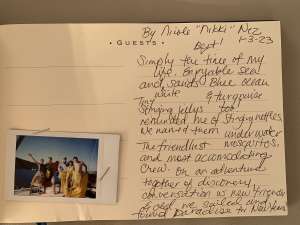 By Nicole "Nikki" Nez
1-3-23
• GUESTS •
Best!
Simply the time of my
life. Enjoyable seal
and saints Blue ocean
white & turquoise
Tiny
Stinging Jellys too
reminded me of Stinging nettles,
We named them underwater
The friendliest mosquitos,
and most accomodating
Crew. On an adventure
together of discovery
conversation w new friends
we sailed and
found Paradise for New Years